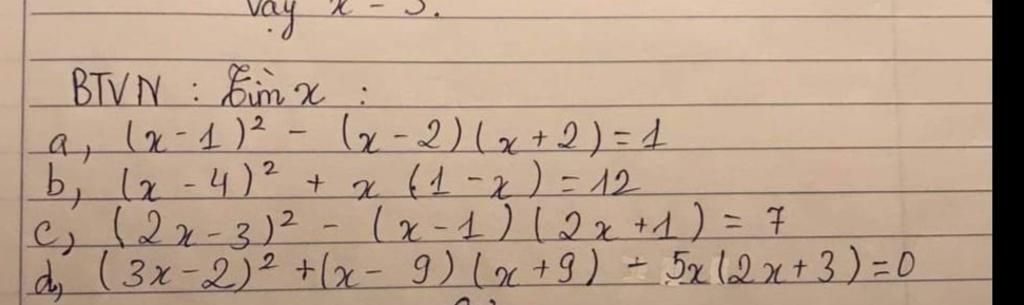 Vậy x = 3.
BTVN : Tìm x :
a, (x - 1)² - (x - 2)(x + 2) = 1
b, (x - 4)² + x (1 - x) = 12
c, (2x - 3)² - (x - 1)(2x + 1) = 7
d, (3x - 2)² + (x - 9)(x + 9) - 5x(2x + 3) = 0